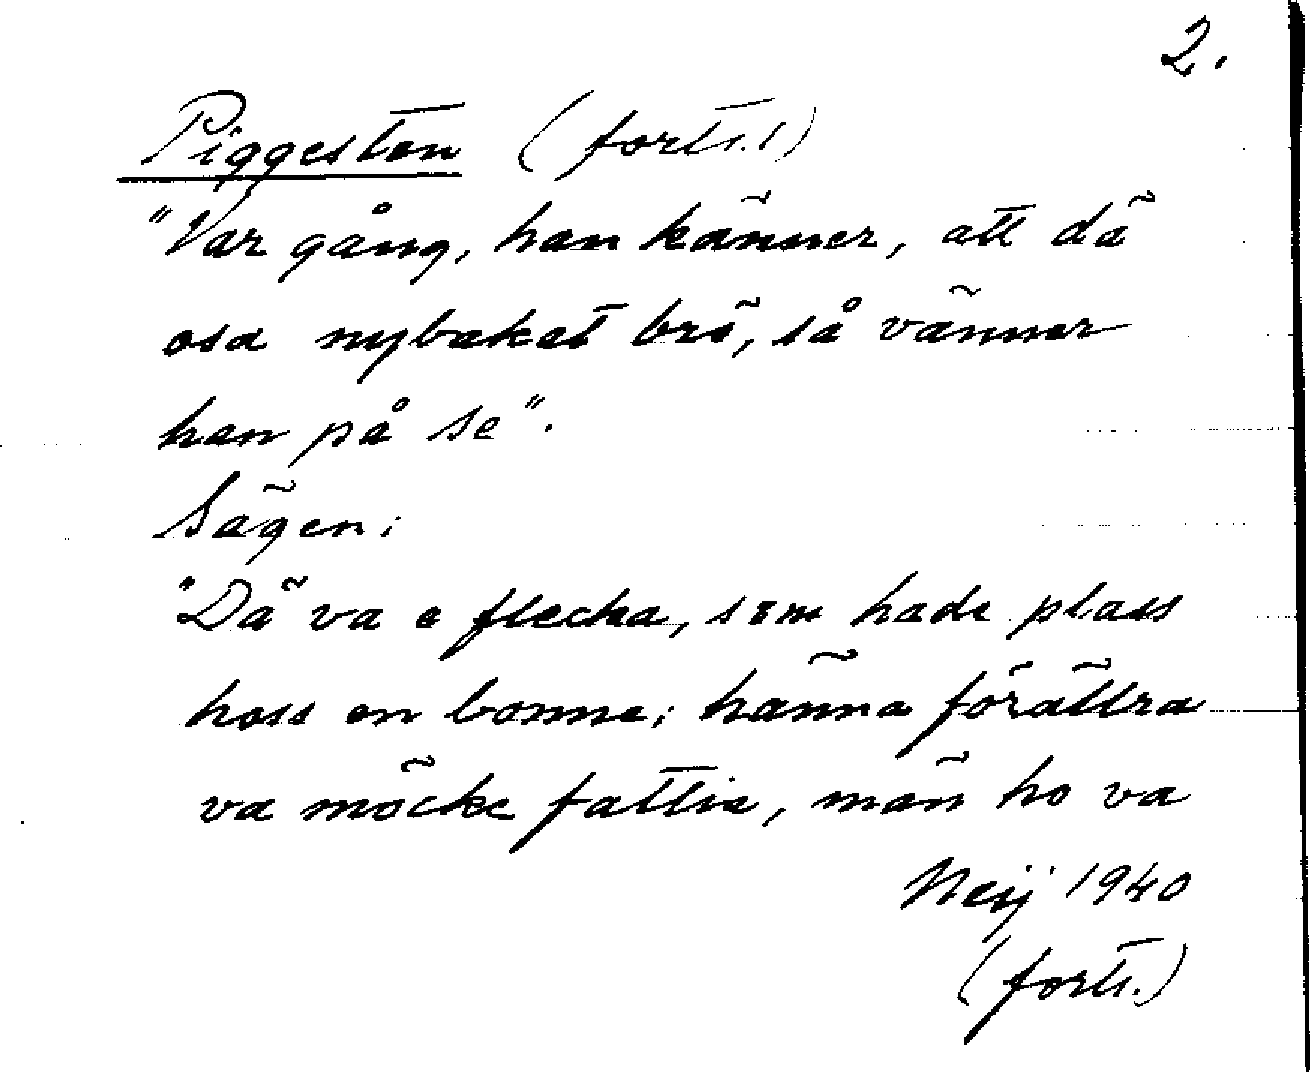 2.
Piggesten (forts.1)
"Var gång, han känner, att dä
osa nybaket brö, så vänner
han på se".
Sägen:
"Dä va e flecka, som hade plass
hoss en bonne; hänna förättra
va möcke fattia, män ho va
Neij 1940
(forts.)